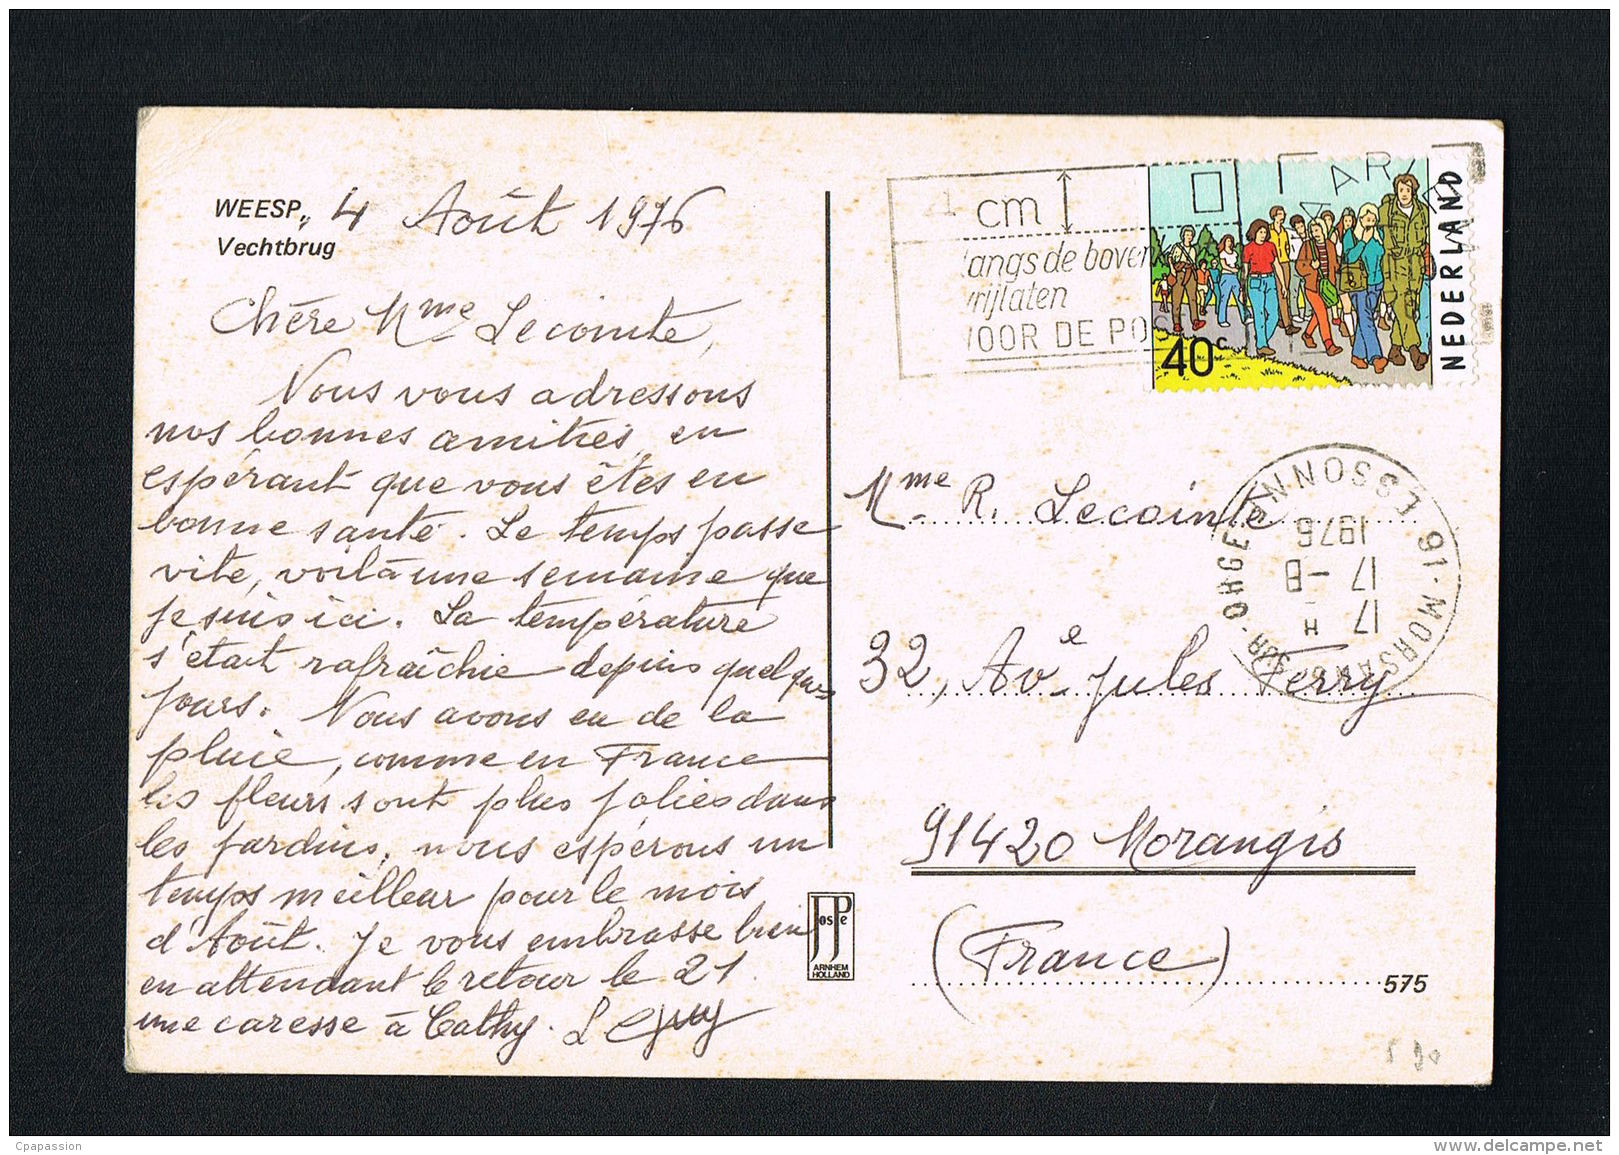 WEESP, 4 Août 1976
Vechtbrug
Chère Mme Lecointe,
Nous vous adressons
nos bonnes amitiés, en
espérant que vous êtes en
bonne santé. Le temps passe
vite, voilà une semaine que
je suis ici. La température
s'était rafraîchie depuis quelques
jours. Nous avons eu de la
pluie, comme en France
les fleurs sont plus jolies dans
les jardins, nous espérons un
temps meilleur pour le mois
d'Août. Je vous embrasse bien
en attendant le retour le 21
une caresse à Cathy.
1 cm
langs de boven
vrijlaten
VOOR DE POS
40c
NEDERLAND
91-MORSANG-SUR-ORGE
ESSONNE
17 H
17 - 8
1976
Mme R. Lecointe
32, Ave Jules Ferry
91420 Morangis
(France)
JosPe
ARNHEM
HOLLAND
575
Cpapassion
www.delcampe.net